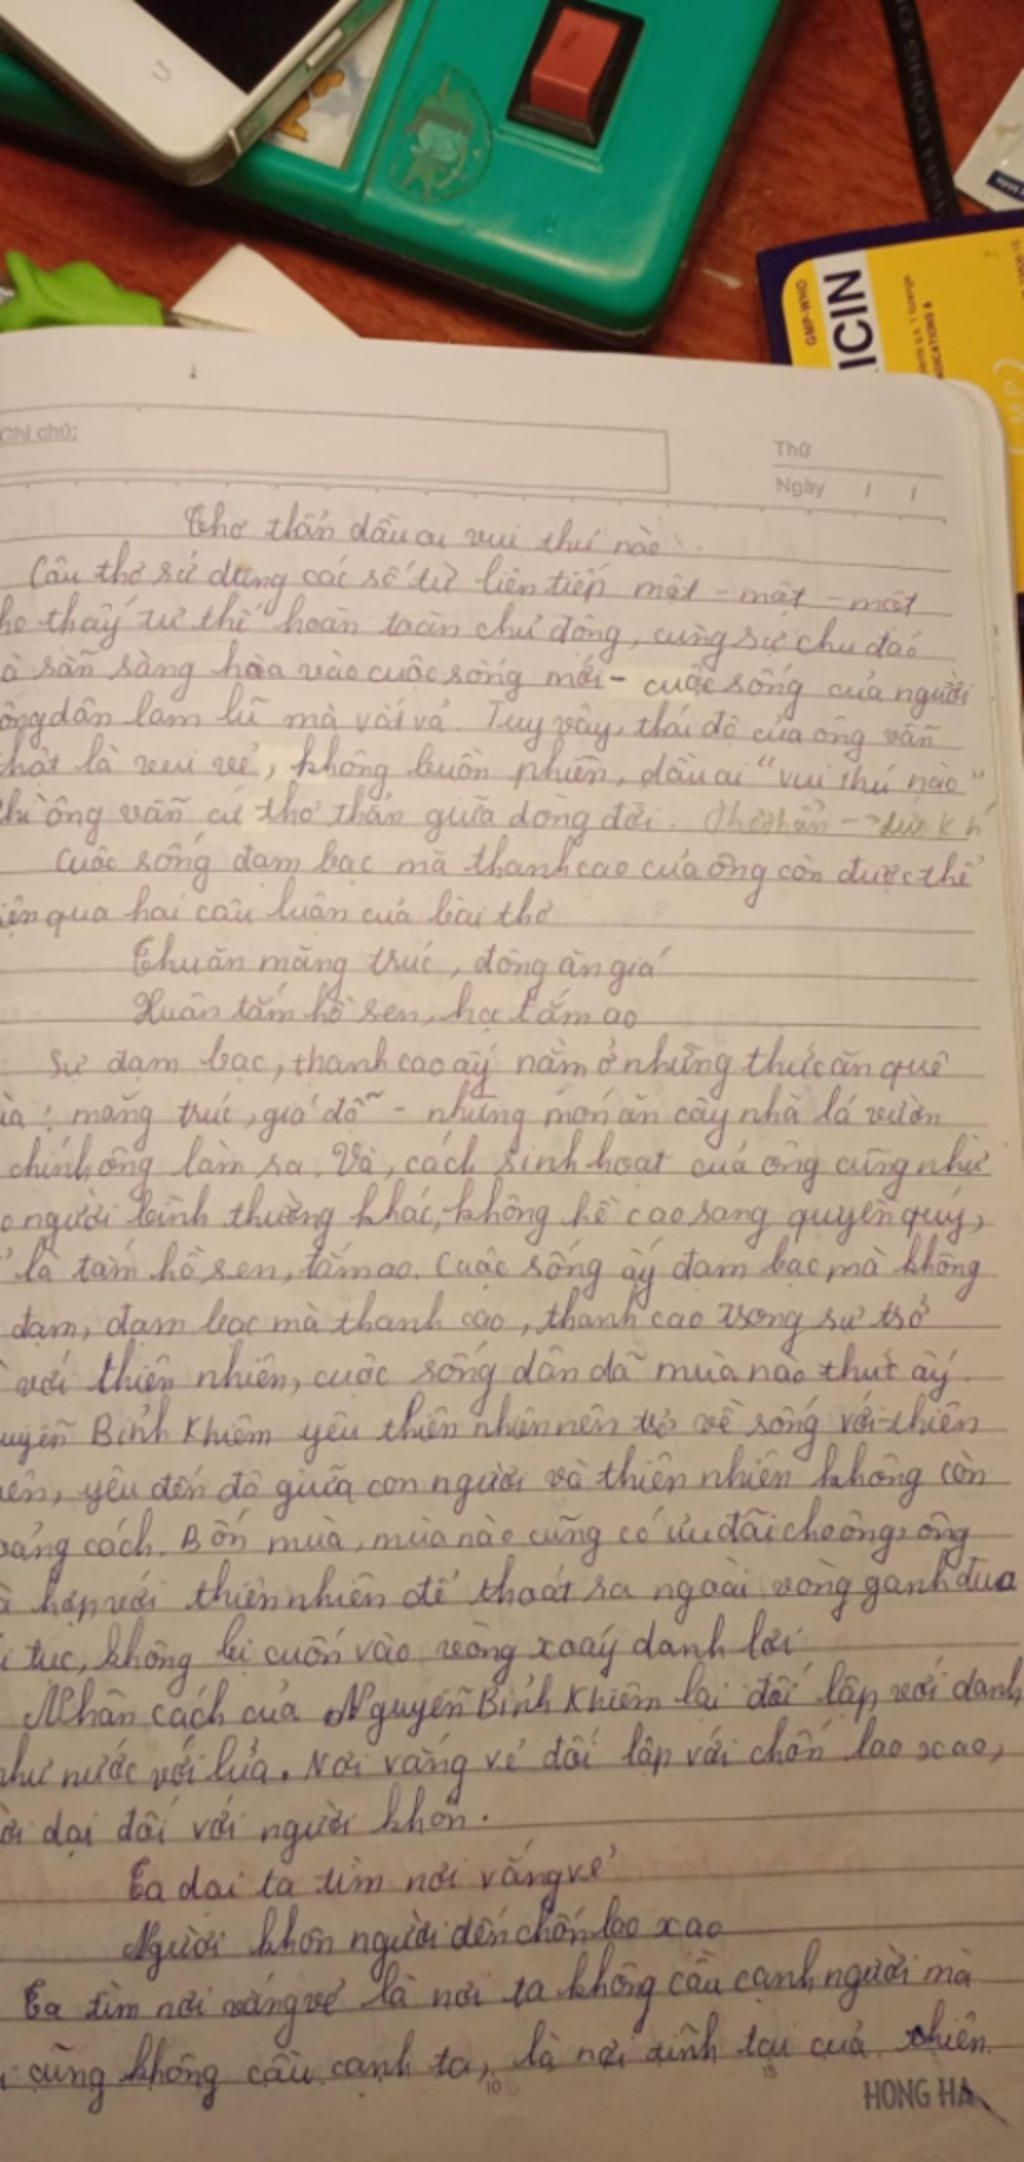 ĐÔNG Đ
ICIN
GMP-WHO
Ghi chú:
Thứ
Ngày / /
Thơ thẩn dầu ai vui thú nào
Câu thơ sử dụng các số từ liên tiếp một - một - một
ho thấy tư thế hoàn toàn chủ động, cùng sự chu đáo
à sẵn sàng hòa vào cuộc sống mới - cuộc sống của người
ông dân lam lũ mà vất vả. Tuy vậy, thái độ của ông vẫn
thật là vui vẻ, không buồn phiền, dầu ai "vui thú nào"
thì ông vẫn cứ thơ thẩn giữa dòng đời. thơ thẩn ->
Cuộc sống đạm bạc mà thanh cao của ông còn được thể
iện qua hai câu luận của bài thơ
Thuăn măng trúc, đông ăn giá
Xuân tắm hồ sen, hạ tắm ao
Sự đạm bạc, thanh cao ấy nằm ở những thức ăn quê
ìa : măng trúc, giá đỗ - những món ăn cây nhà lá vườn
chính ông làm ra. Và, cách sinh hoạt của ông cũng như
o người bình thường khác, không hề cao sang quyền quý,
là tắm hồ sen, tắm ao. Cuộc sống ấy đạm bạc mà không
đạm, đạm bạc mà thanh cao, thanh cao trong sự trở
với thiên nhiên, cuộc sống dân dã mùa nào thức ấy.
uyễn Bỉnh Khiêm yêu thiên nhiên nên trở về sống với thiên
iên, yêu đến độ giữa con người và thiên nhiên không còn
oảng cách. Bốn mùa, mùa nào cũng có ưu đãi cho ông, ông
à hợp với thiên nhiên để thoát ra ngoài vòng ganh đua
i tục, không bị cuốn vào vòng xoáy danh lợi
Nhân cách của Nguyễn Bỉnh Khiêm lại đối lập với danh
như nước với lửa. Nơi vắng vẻ đối lập với chốn lao xao,
ời dại đối với người khôn.
Ta dại ta tìm nơi vắng vẻ
Người khôn người đến chốn lao xao
Ta tìm nơi vắng vẻ là nơi ta không cầu cạnh người mà
i cũng không cầu cạnh ta, là nơi tĩnh tại của thiên
10 15
HONG HA